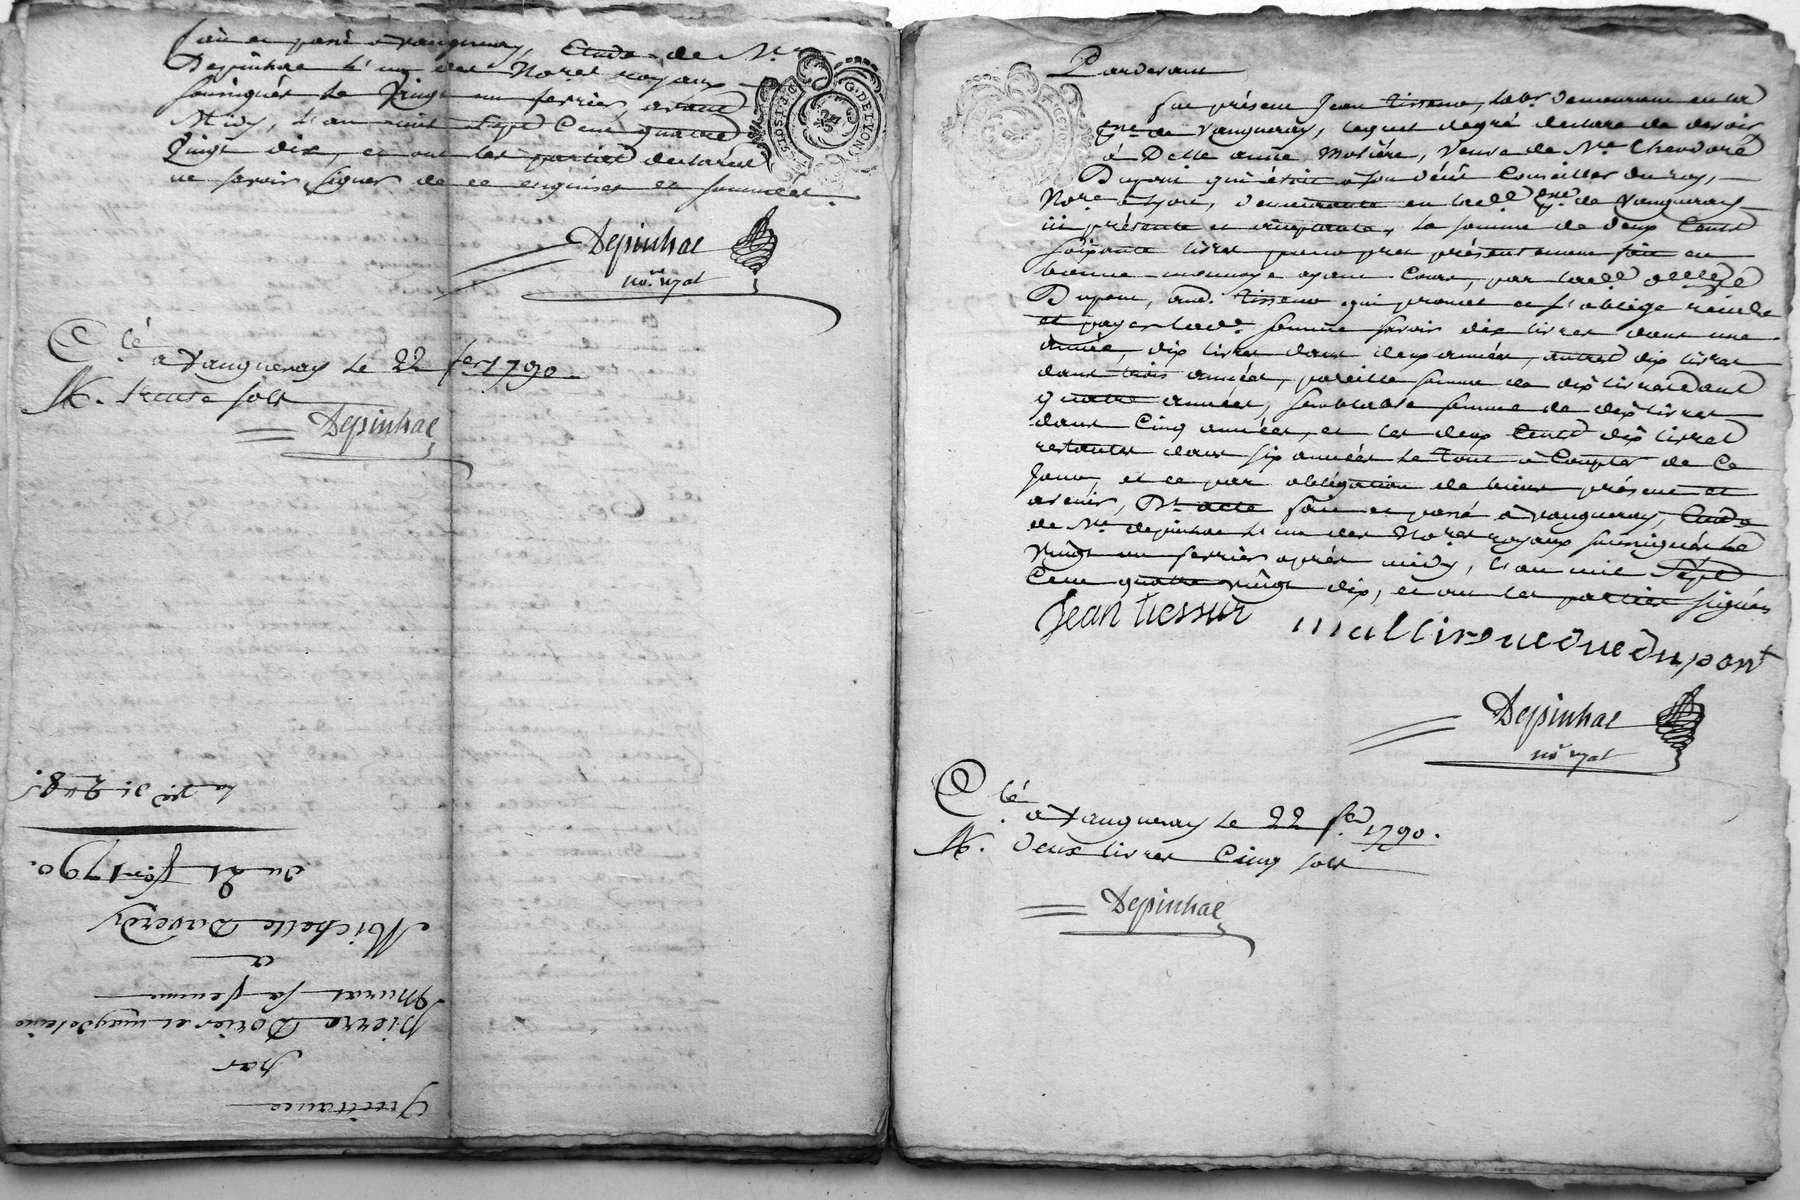 fait et passé à Vaugneray, Etude de Me
Depinhac l'un des Nores royaux
soussignés le Vingt un fevrier avant
Midy, l'an mil sept Cent quatre
Vingt dix, et ont les parties declarées
ne savoir signer de ce enquises et sommées.
G. DE LYON
Depinhac
no.re royal
C.lé
a Vaugneray le 22 fer. 1790.
R. trente sols
Depinhac
Quittance
par
pierre Dorier et magdeleine
Murat sa femme
a
Michelle Duverdy
du 21 fer. 1790.
Pardevant
fut présent Jean tisseur, labr. demeurant en la
Gne. de Vaugneray, lequel degré declare de devoir
à Delle anne Molière, Veuve de Mre. theodore
Dupont qui étoit à son décès Conseiller du roy,
Nore. a lyon, demeurante en lade. Gne. de Vaugneray
ici présente et acceptante, la somme de deux Cents
soixante livres pour prêt présentement fait en
bonne monnoye ayant Cours, par lade. delle. Ve.
Dupont, aud. tisseur qui promet et s'oblige rendre
et payer lade. somme savoir dix livres dans une
année, dix livres dans deux années, autres dix livres
dans trois années, pareille somme de dix livres dans
quatre années, semblable somme de dix livres
dans Cinq années, et les deux Cents dix livres
restantes dans six années le tout à Compter de Ce
Jour, et ce par obligation de biens présent et
avenir, Dt. acte fait et passé à Vaugneray, Etude
de Me. depinhac l'un des Nores royaux soussignés le
Vingt un fevrier après midy, l'an mil sept
Cent quatre vingt dix, et ont les parties signés
Jean tissur
Depinhac
no.re royal
C.lé
à Vaugneray le 22 fer. 1790.
R. deux livres Cinq sols
Depinhac